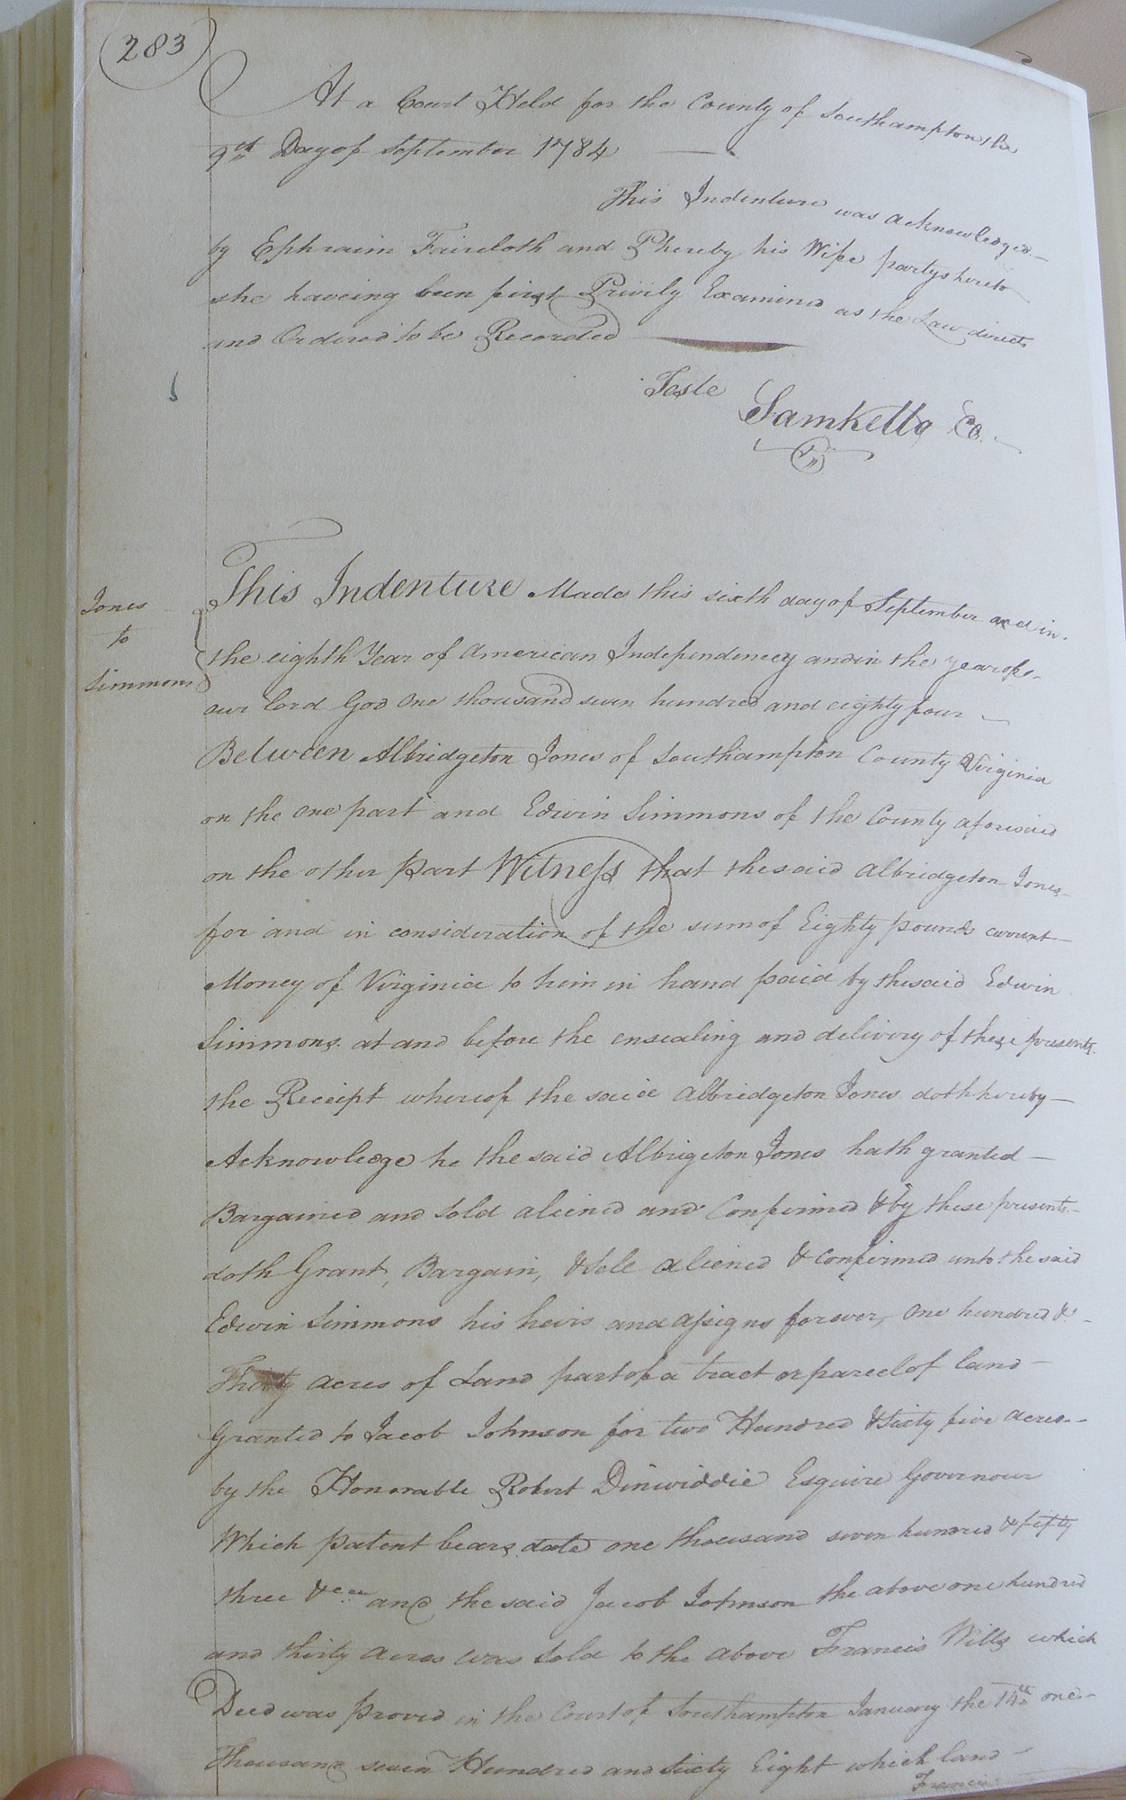 283
At a Court Held for the County of Southampton the
9th Day of September 1784
This Indenture was acknowledged
by Ephraim Faircloth and Phereby his Wife partys hereto
she haveing been first Privily Examined as the Law directs
and Ordered to be Recorded
Teste
Samkello CC.
This Indenture Made this sixth day of September and in
the eighth Year of American Independency and in the year of
our Lord God One thousand seven hundred and eighty four
Between Albridgeton Jones of Southampton County Virginia
on the one part and Edwin Simmons of the County aforesaid
on the other Part Witness that the said Albridgeton Jones
for and in consideration of the sum of Eighty pounds current
Money of Virginia to him in hand paid by the said Edwin
Simmons at and before the ensealing and delivery of these presents
the Receipt whereof the said Albridgeton Jones doth hereby
Acknowledge he the said Albrigeton Jones hath granted
Bargained and Sold aliened and Confirmed & by these presents
doth Grant, Bargain, & Sell aliened & confirmed unto the said
Edwin Simmons his heirs and assigns forever, One hundred &
Thirty acres of Land part of a tract or parcel of land
Granted to Jacob Johnson for two Hundred & Sixty five acres
by the Honorable Robert Dinwiddie Esquire Governour
Which patent bears date one thousand seven hundred & fifty
three &ca and the said Jacob Johnson the above one hundred
and thirty acres was Sold to the above Francis Wills which
Deed was proved in the Court of Southampton January the 14th one
Thousand seven Hundred and Sixty Eight which land
Francis
Jones
to
Simmons